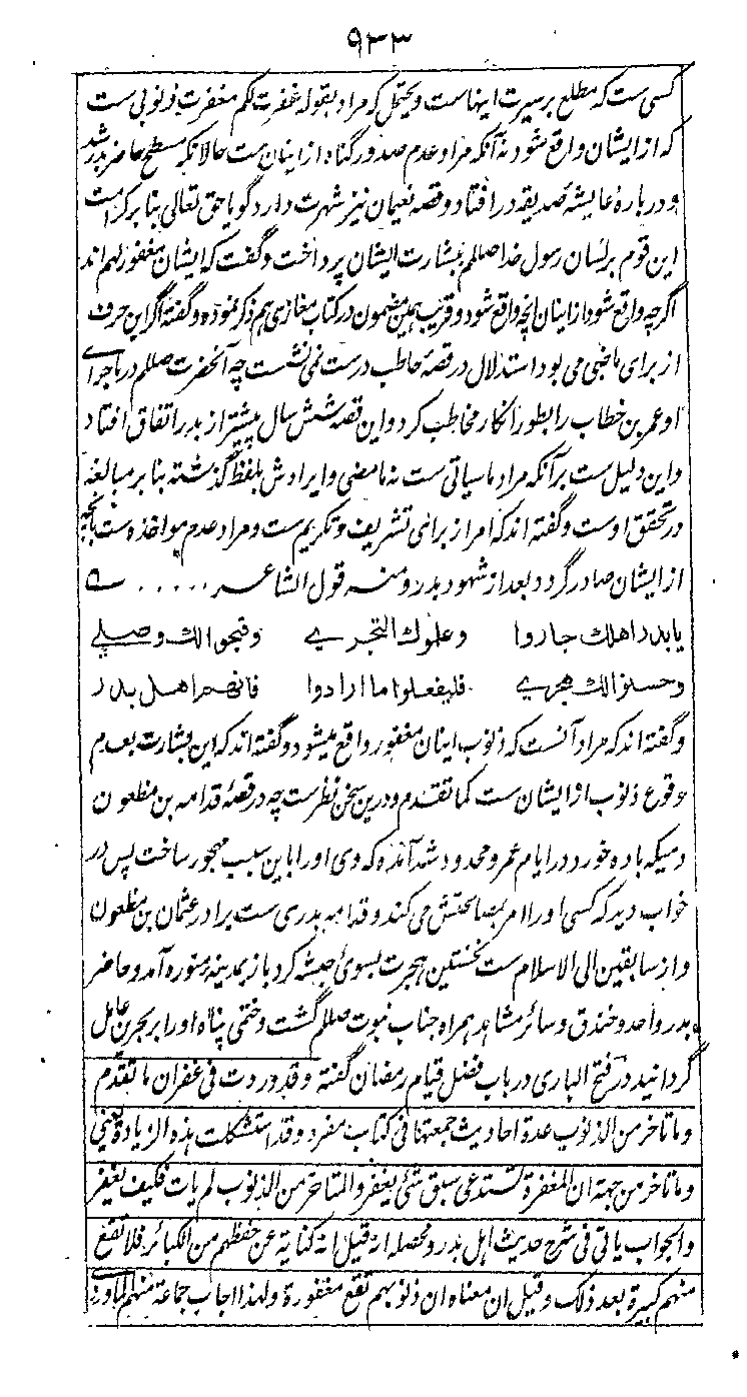 ۹۳۳
کسی ست که مطلع بر سیرت اینهاست و یحتمل که مراد بقوله غفرت لکم مغفرت ذنوبی ست
که از ایشان واقع شود نه آنکه مراد عدم صدور گناه از اینان ست حالانکه مسطح حاضر بدر شد
و درباره عایشه صدیقه در افتاد و قصه نعیمان نیز شهرت دارد گویا حق تعالی بنا بر کرامت
این قوم بر لسان رسول خدا صللم ببشارت ایشان پرداخت و گفت که ایشان مغفور لهم اند
اگرچه واقع شود از اینان انچه واقع شود و قریب همین مضمون در کتاب مغازی هم ذکر نموده و گفته اگر این حرف
از برای ماضی می بود استدلال در قصهٔ حاطب درست نمی نشست چه آنحضرت صللم در ماجرای
او عمر بن خطاب را بطور انکار مخاطب کرد و این قصه شش سال پیشتر از بدر اتفاق افتاد
و این دلیل ست بر آنکه مراد ما سیاتی ست نه ما مضی و ایرادش بلفظ گذشته بنا بر مبالغه
در تحقق اوست و گفته اند که امر از برای تشریف و تکریم ست و مراد عدم مواخذه ست بانچه
از ایشان صادر گردد بعد از شهود بدر و منه قول الشاعر .....
یا بدر اهلك جاروا وعلموك التجری وقبحوا لك وصلی
وحسنوا لك هجری فلیفعلوا ما ارادوا فانهم اهل بدر
و گفته اند که مراد آنست که ذنوب اینان مغفور واقع میشود و گفته اند که این بشارت بعدم
وقوع ذنوب از ایشان ست کما تقدم و درین سخن نظر ست چه در قصهٔ قدامه بن مظعون
دمیکه باده خورد در ایام عمر و محدود شد آمده که وی او را باین سبب مهجور ساخت پس در
خواب دید که کسی او را امر بمصالحتش می کند و قدامه بدری ست برادر عثمان بن مظعون
و از سابقین الی الاسلام ست نخستین هجرت بسوی حبشه کرد باز بمدینه منوره آمد و حاضر
بدر و احد و خندق و سائر مشاهد همراه جناب نبوت صللم گشت و ختمی پناه او را بر بحرین عامل
گردانید در فتح الباری در باب فضل قیام رمضان گفته و قد وردت فی غفران ما تقدم
و ما تاخر من الذنوب عدة احادیث جمعتها فی کتاب مفرد و قد استشکلت هذه الزیادة یعنی
و ما تاخر من جهة ان المغفرة تستدعی سبق شئ یغفر و المتاخر من الذنوب لم یات فکیف یغفر
و الجواب یاتی فی شرح حدیث اهل بدر و محصله انه قیل انه کنایة عن حفظهم من الکبائر فلا تقع
منهم کبیرة بعد ذلک و قیل ان معناه ان ذنوبهم تقع مغفورة و لهذا اجاب جماعة منهم الماوردی